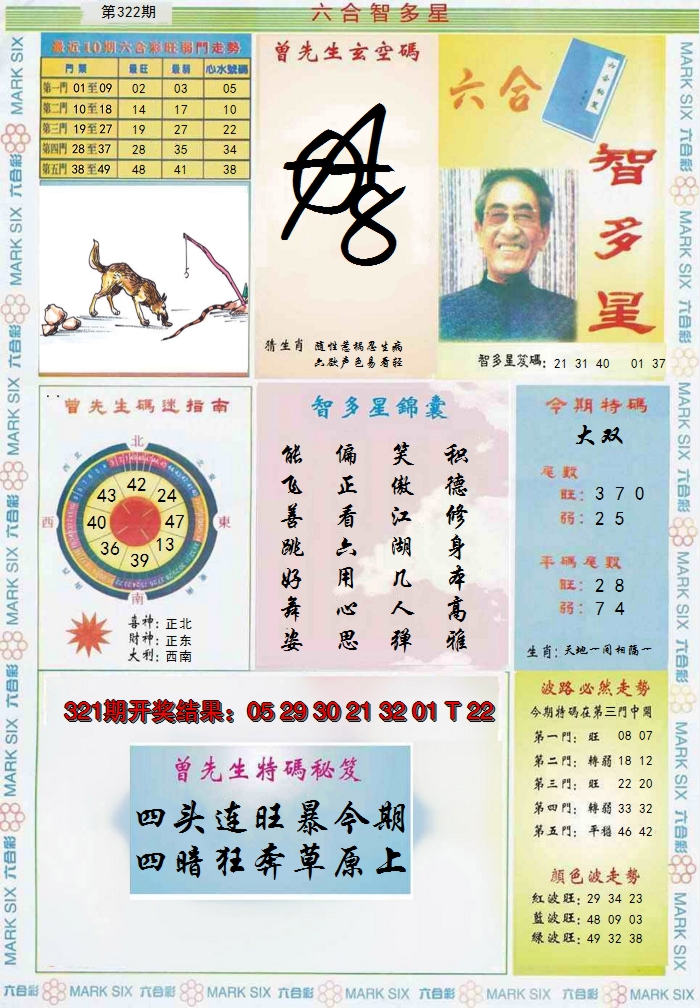 第322期
六合智多星
最近10期六合彩旺弱門走勢
門類 最旺 最弱 心水號碼
第一門 01至09 02 03 05
第二門 10至18 14 17 10
第三門 19至27 19 27 22
第四門 28至37 28 35 34
第五門 38至49 48 41 38
曾先生玄空碼
猜生肖 随性惹祸忍生病
六欲声色易看轻
六合
智多星
智多星笈碼: 21 31 40 01 37
曾先生碼迷指南
北
西
東
南
42
24
47
13
39
36
40
43
喜神: 正北
財神: 正东
大利: 西南
智多星錦囊
能飞善跳好舞姿
偏正看六用心思
笑傲江湖几人弹
积德修身本高雅
今期特碼
大双
尾數
旺: 3 7 0
弱: 2 5
平碼尾數
旺: 2 8
弱: 7 4
生肖: 天地一间相隔一
321期开奖结果：05 29 30 21 32 01 T 22
曾先生特碼秘笈
四头连旺暴今期
四暗狂奔草原上
波路必然走勢
今期特碼在第三門中開
第一門: 旺 08 07
第二門: 轉弱 18 12
第三門: 旺 22 20
第四門: 轉弱 33 32
第五門: 平穩 46 42
顏色波走勢
紅波旺: 29 34 23
藍波旺: 48 09 03
綠波旺: 49 32 38
六合彩 MARK SIX 六合彩 MARK SIX 六合彩 MARK SIX 六合彩 MARK SIX 六合彩